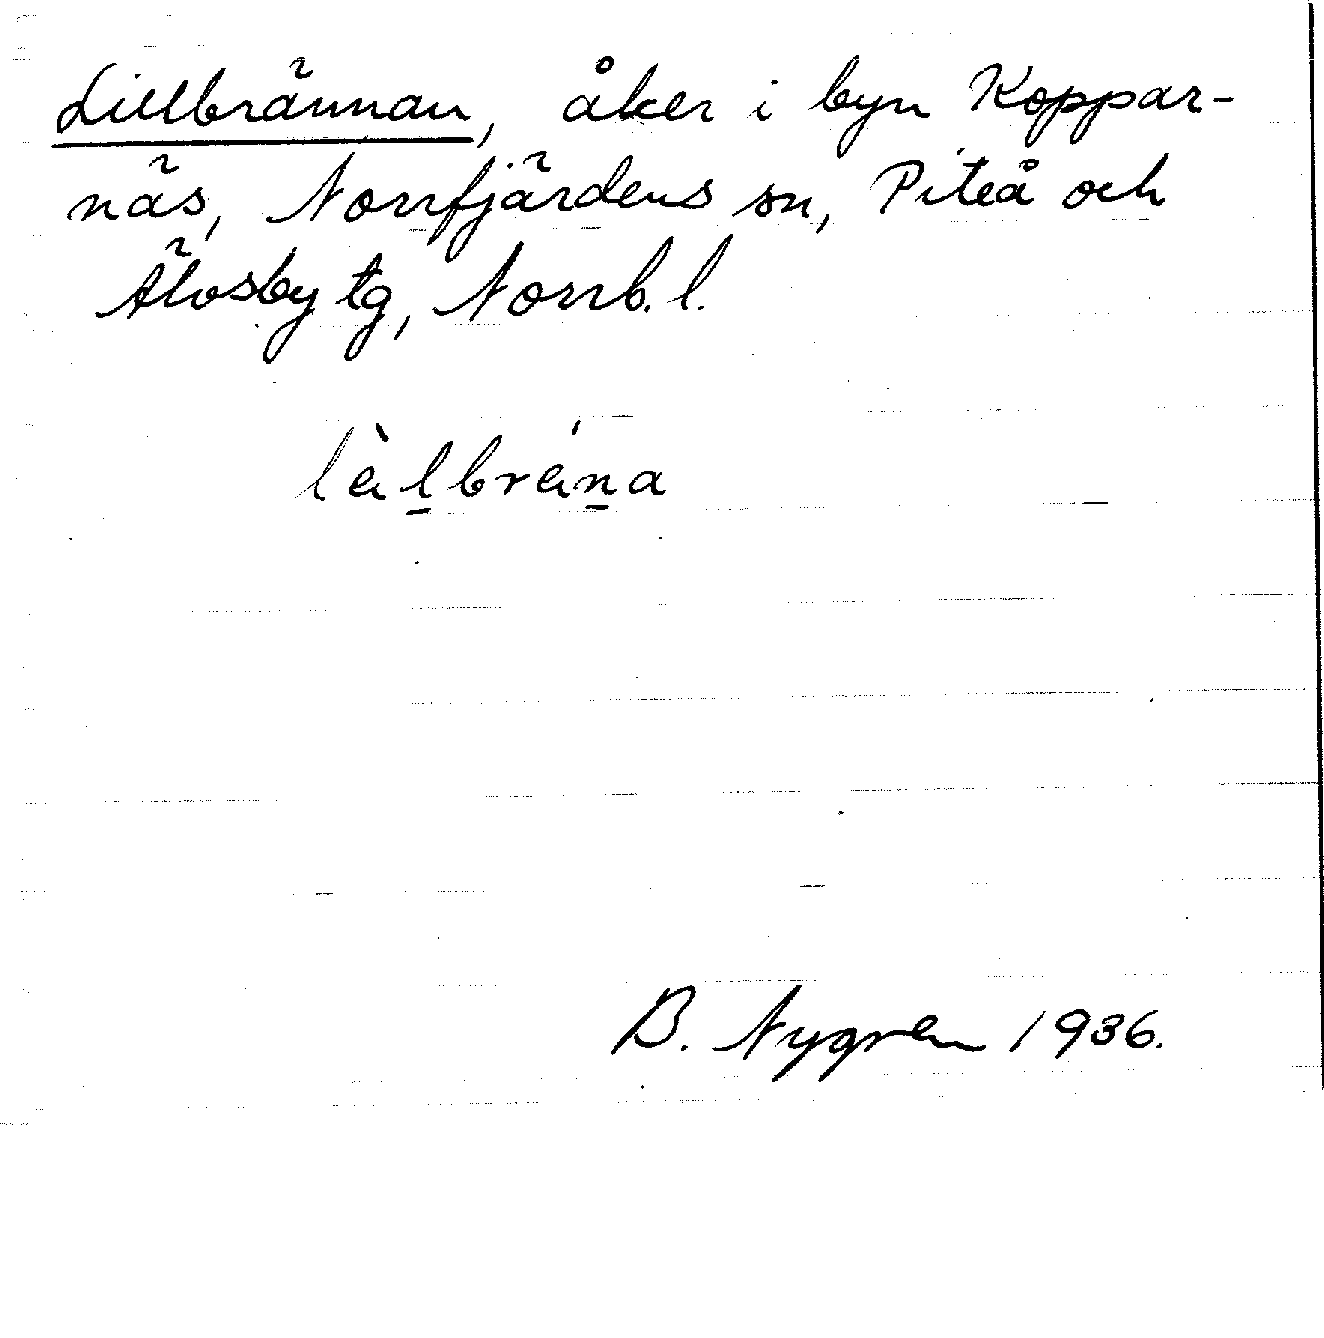 Lillbrännan, åker i byn Koppar-
näs, Norrfjärdens sn, Piteå och
Älvsby tg, Norrb. l.
B. Nygren 1936.